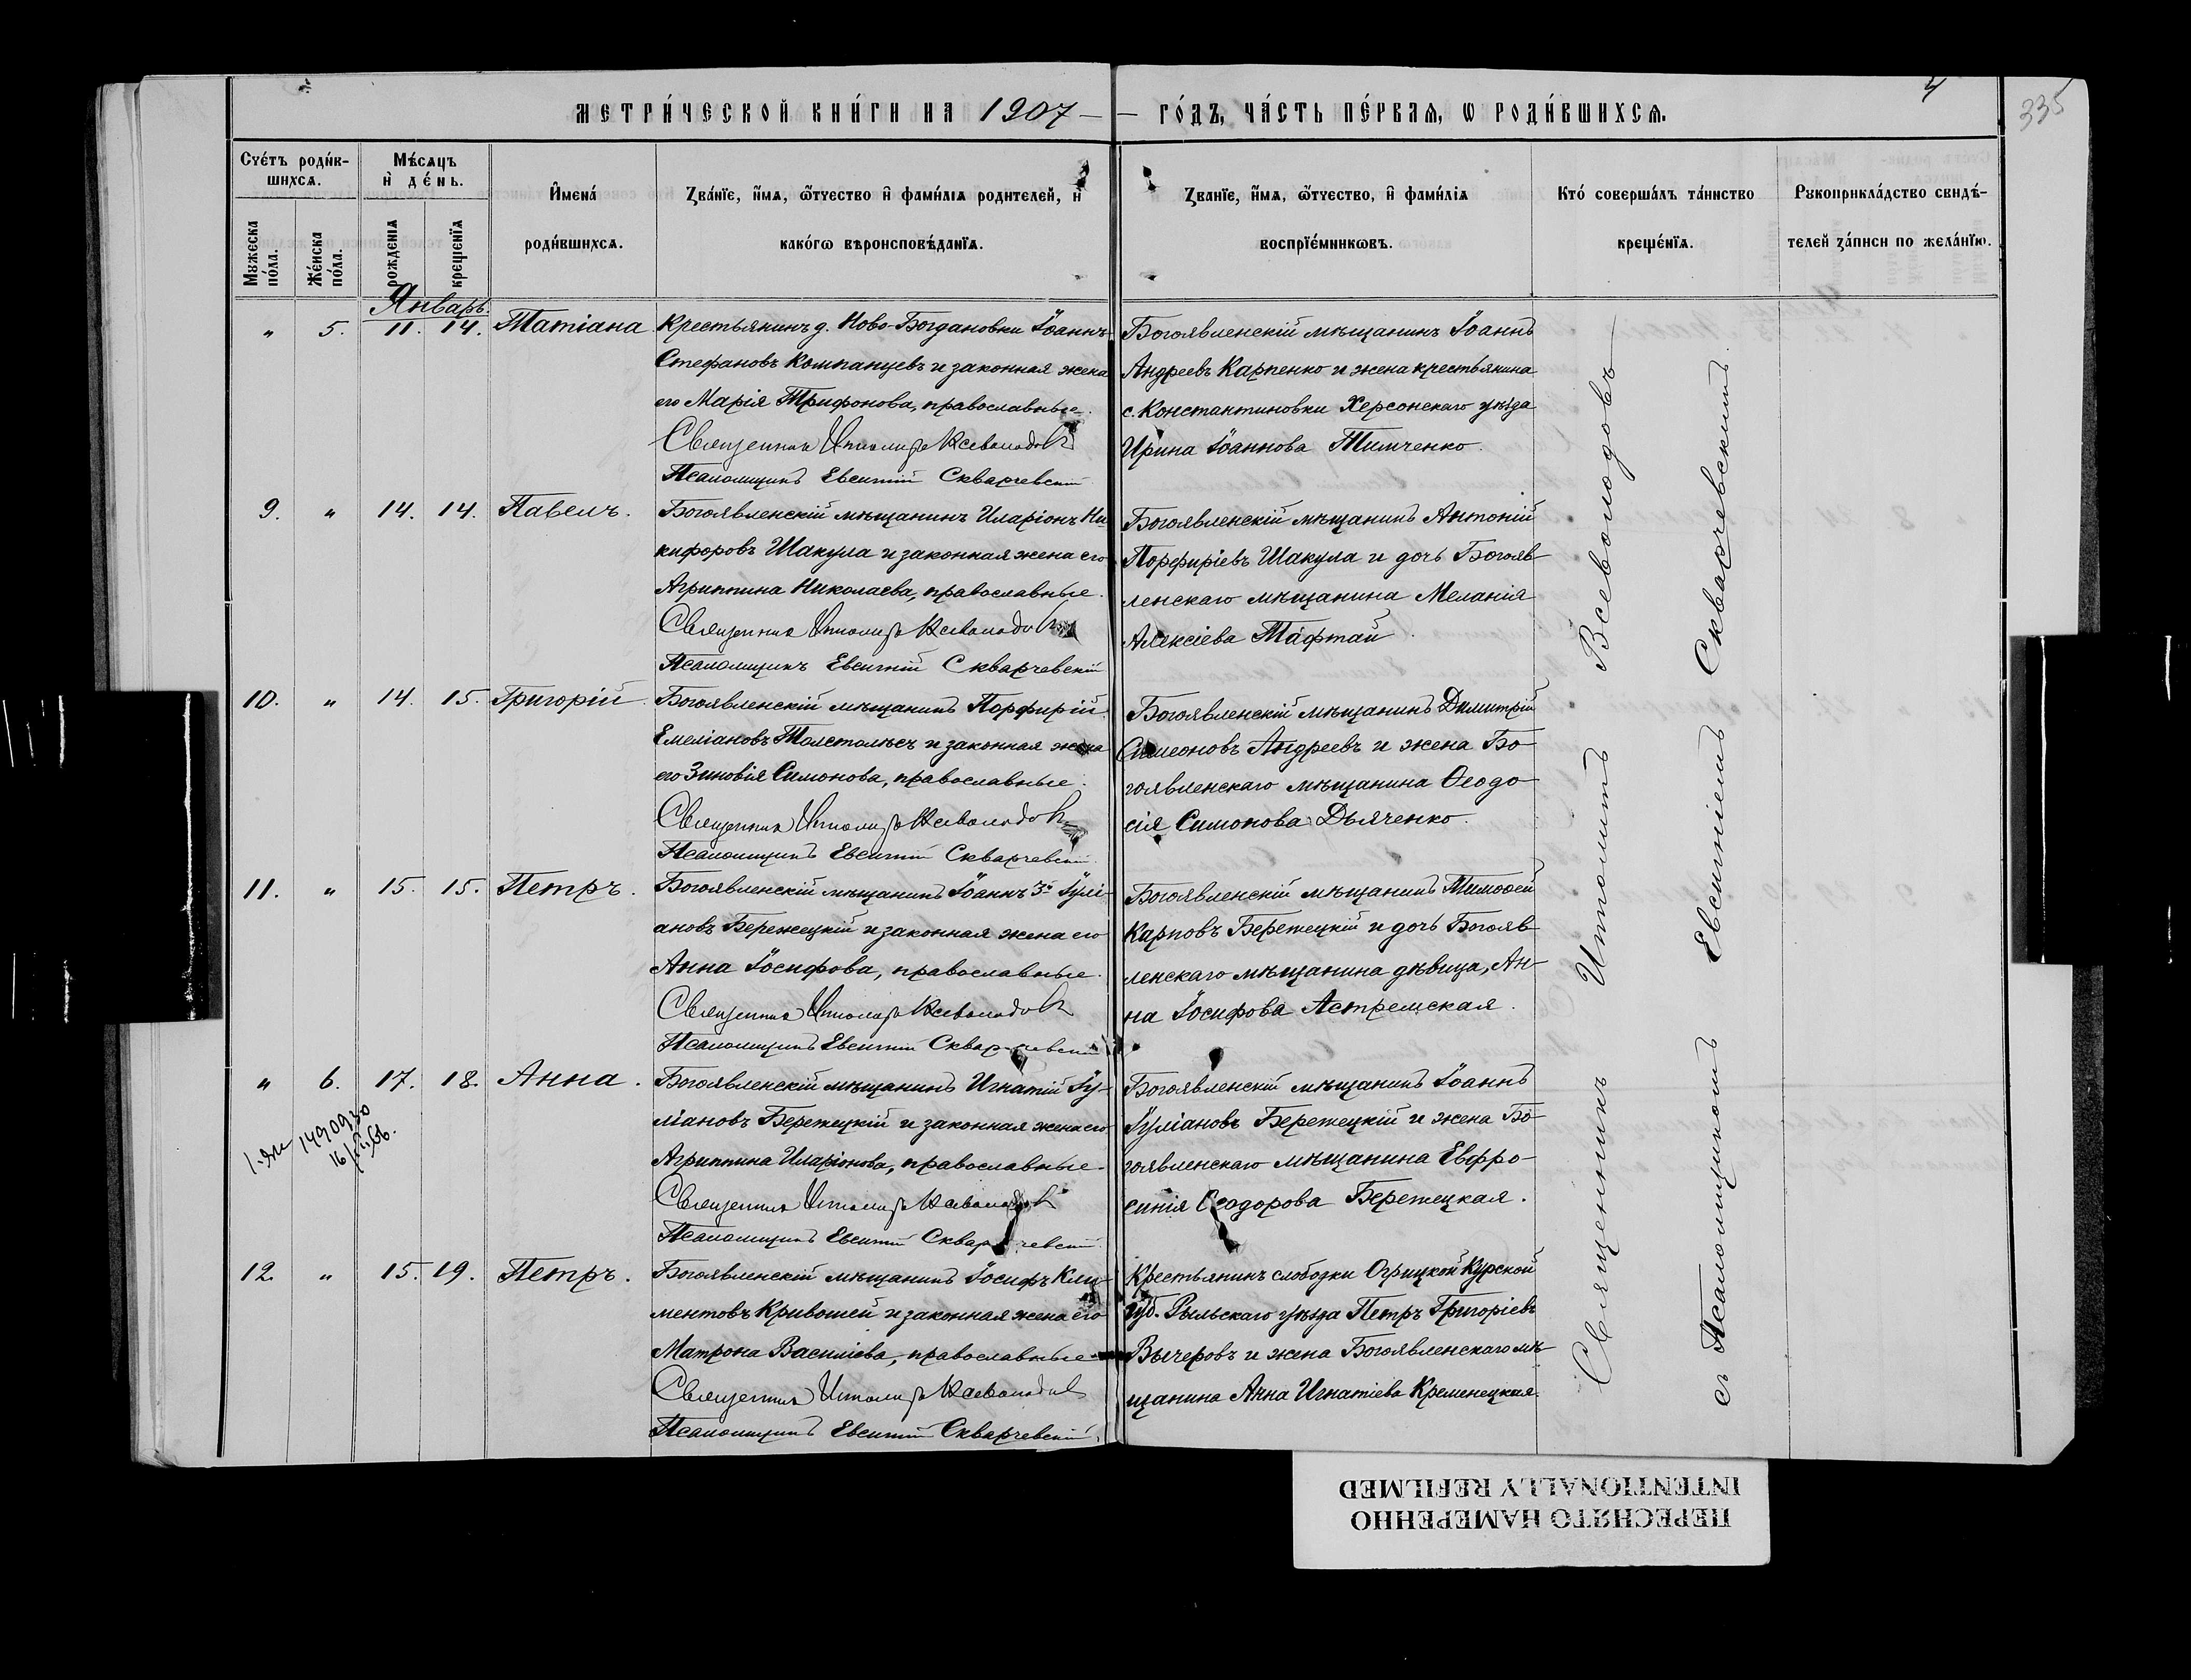 МЕТРИ́ЧЕСКОЙ КНИ́ГИ НА 1907 — ГО́ДЪ, ЧА́СТЬ ПЕ́РВАѦ, Ѡ РОДИ́ВШИХСѦ.
4
335
Сче́тъ роди́в-
шихсѧ.
Мꙋжеска
по́ла.
Же́нска
по́ла.
Мѣ́сѧцъ
и҆ де́нь.
рожденїѧ
крещенїѧ
И҆мена́
роди́вшихсѧ.
Зва́нїе, и҆́мѧ, ѻ҆́тчество и҆ фами́лїѧ родителей, и҆
како́гѡ вѣроисповѣ́данїѧ.
Званїе, и҆́мѧ, ѻ҆́тчество, и҆ фами́лїѧ
воспрїе́мникѡвъ.
Кто́ соверша́лъ та́инство
креще́нїѧ.
Рꙋкоприкла́дство свидѣ́-
телей за́писи по жела́нїю.
Январь.
" 5. 11. 14. Татіана
Крестьянинъ д. Ново-Богдановки Іоаннъ
Стефановъ Компанцевъ и законная жена
его Марія Трифонова, православные.
Священникъ Ипполитъ Всеволодовъ
Псаломщикъ Евсигній Скварчевскій
Богоявленскій мѣщанинъ Іоаннъ
Андреевъ Карпенко и жена крестьянина
с. Константиновки Херсонскаго уѣзда
Ирина Іоаннова Тимченко.
9. " 14. 14. Павелъ.
Богоявленскій мѣщанинъ Иларіонъ Ни-
кифоровъ Шакула и законная жена его
Агриппина Николаева, православные.
Священникъ Ипполитъ Всеволодовъ
Псаломщикъ Евсигній Скварчевскій
Богоявленскій мѣщанинъ Антоній
Порфиріевъ Шакула и дочь Богояв-
ленскаго мѣщанина Меланія
Алексіева Тафтай.
10. " 14. 15. Григорій
Богоявленскій мѣщанинъ Порфирій
Емеліановъ Толстолѣсъ и законная жена
его Зиновія Симонова, православные.
Священникъ Ипполитъ Всеволодовъ
Псаломщикъ Евсигній Скварчевскій
Богоявленскій мѣщанинъ Димитрій
Симеоновъ Андреевъ и жена Бо-
гоявленскаго мѣщанина Ѳеодо-
сія Симонова Дьяченко.
11. " 15. 15. Петръ.
Богоявленскій мѣщанинъ Іоаннъ 3й Іулі-
ановъ Бережецкій и законная жена его
Анна Іосифова, православные.
Священникъ Ипполитъ Всеволодовъ
Псаломщикъ Евсигній Скварчевскій
Богоявленскій мѣщанинъ Тимоѳей
Карповъ Бережецкій и дочь Богояв-
ленскаго мѣщанина дѣвица, Ан-
на Іосифова Астремская.
" 6. 17. 18. Анна.
1490930
Богоявленскій мѣщанинъ Игнатій Іу-
ліановъ Бережецкій и законная жена его
Агриппина Иларіонова, православные.
Священникъ Ипполитъ Всеволодовъ
Псаломщикъ Евсигній Скварчевскій
Богоявленскій мѣщанинъ Іоаннъ
Іуліановъ Бережецкій и жена Бо-
гоявленскаго мѣщанина Евфро-
синія Ѳеодорова Бережецкая.
12. " 15. 19. Петръ.
Богоявленскій мѣщанинъ Іосифъ Кли-
ментовъ Кривошей и законная жена его
Матрона Василіева, православные
Священникъ Ипполитъ Всеволодовъ
Псаломщикъ Евсигній Скварчевскій.
Крестьянинъ слободки Огрицкой Курской
губ. Рыльскаго уѣзда Петръ Григоріевъ
Вычеровъ и жена Богоявленскаго мѣ-
щанина Анна Игнатіева Кременецкая.
Священникъ Ипполитъ Всеволодовъ
съ Псаломщикомъ Евсигніемъ Скварчевскимъ.
ПЕРЕСНЯТО НАМЕРЕННО
INTENTIONALLY REFILMED